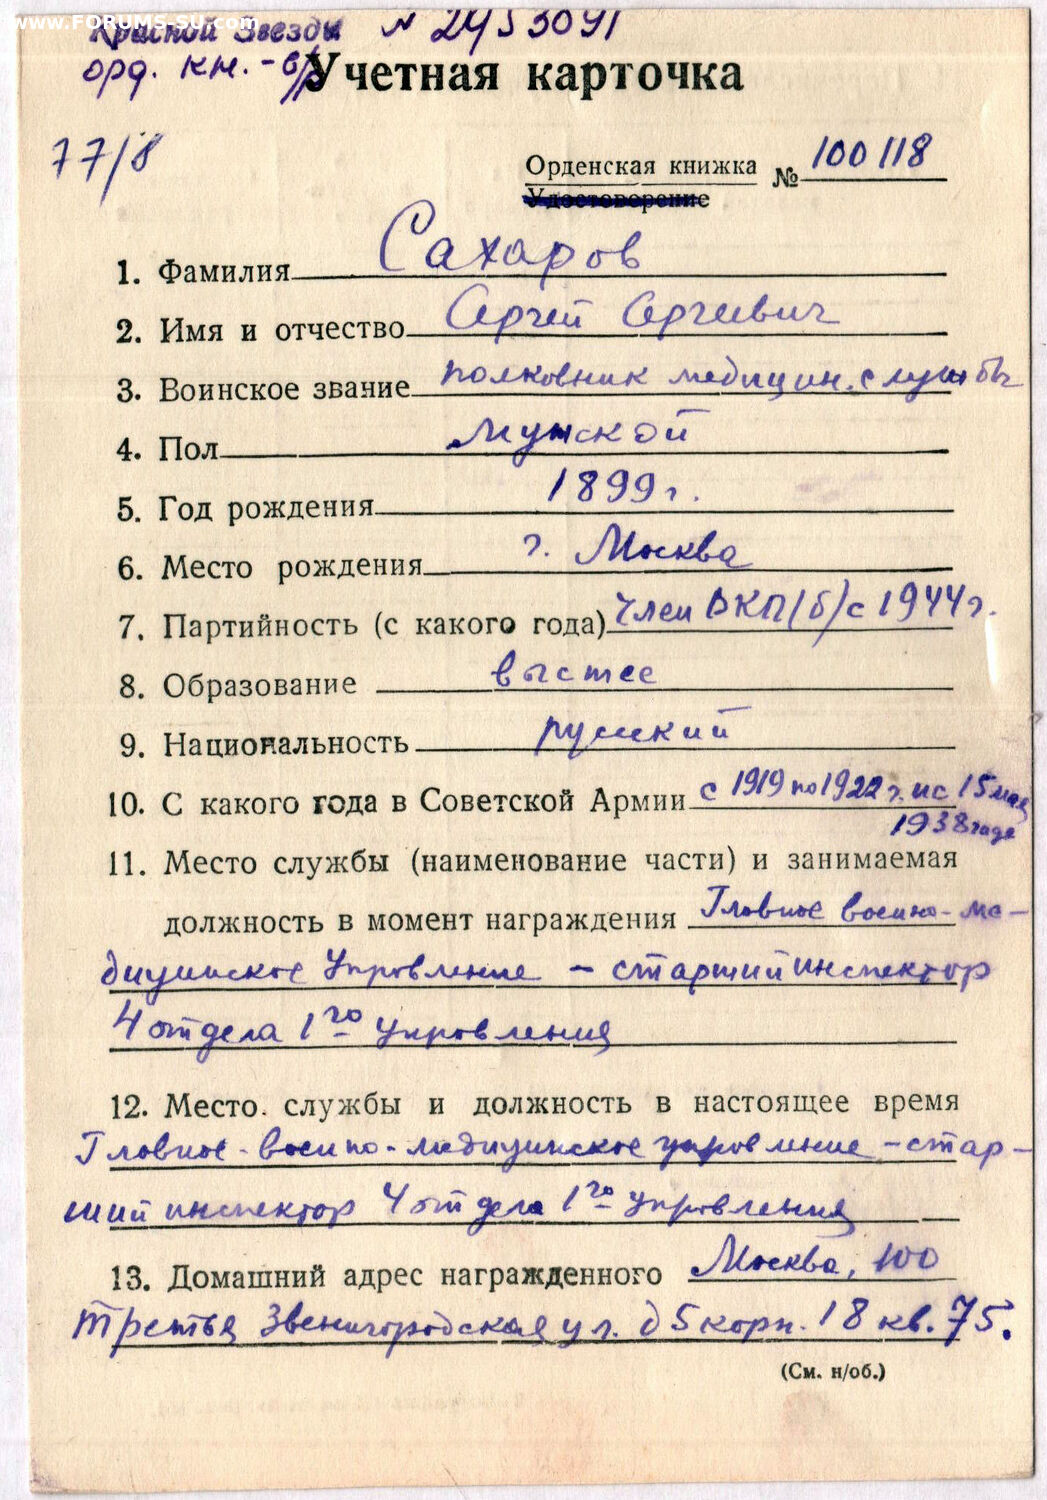 www.FORUMS-SU.com
Красной Звезды № 2453091
орд. кн. - в/р
Учетная карточка
77/8
Орденская книжка № 100118
Удостоверение
1. Фамилия Сахаров
2. Имя и отчество Сергей Сергеевич
3. Воинское звание полковник медицин. службы
4. Пол Мужской
5. Год рождения 1899 г.
6. Место рождения г. Москва
7. Партийность (с какого года) Член ВКП(б) с 1944 г.
8. Образование высшее
9. Национальность русский
10. С какого года в Советской Армии с 1919 по 1922 г. и с 15 мая
1938 года
11. Место службы (наименование части) и занимаемая
должность в момент награждения Главное военно-ме-
дицинское Управление - старший инспектор
4 отдела 1го управления
12. Место службы и должность в настоящее время
Главное-военно-медицинское управление - стар-
ший инспектор 4 отдела 1го управления
13. Домашний адрес награжденного Москва, 100
третья Звенигородская ул. д 5 корп. 18 кв. 75.
(См. н/об.)